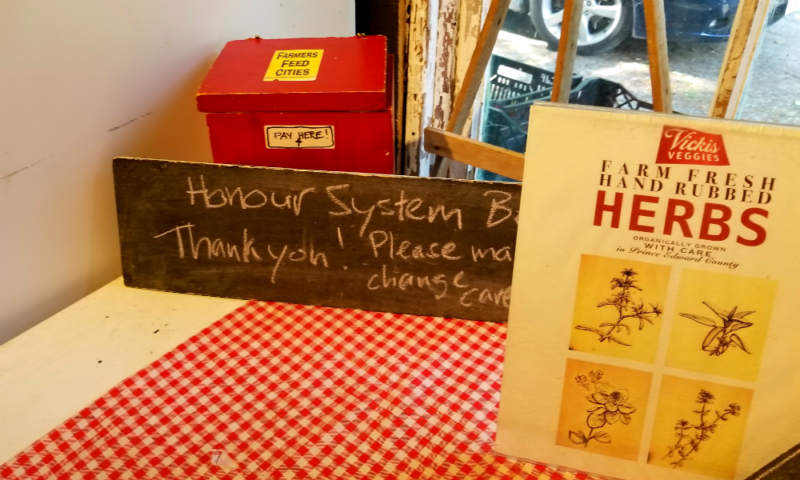 FARMERS
FEED
CITIES
PAY HERE!
Honour System
Thank yoh! Please
change
Vicki's
VEGGIES
FARM FRESH
HAND RUBBED
HERBS
ORGANICALLY GROWN
WITH CARE
in Prince Edward County